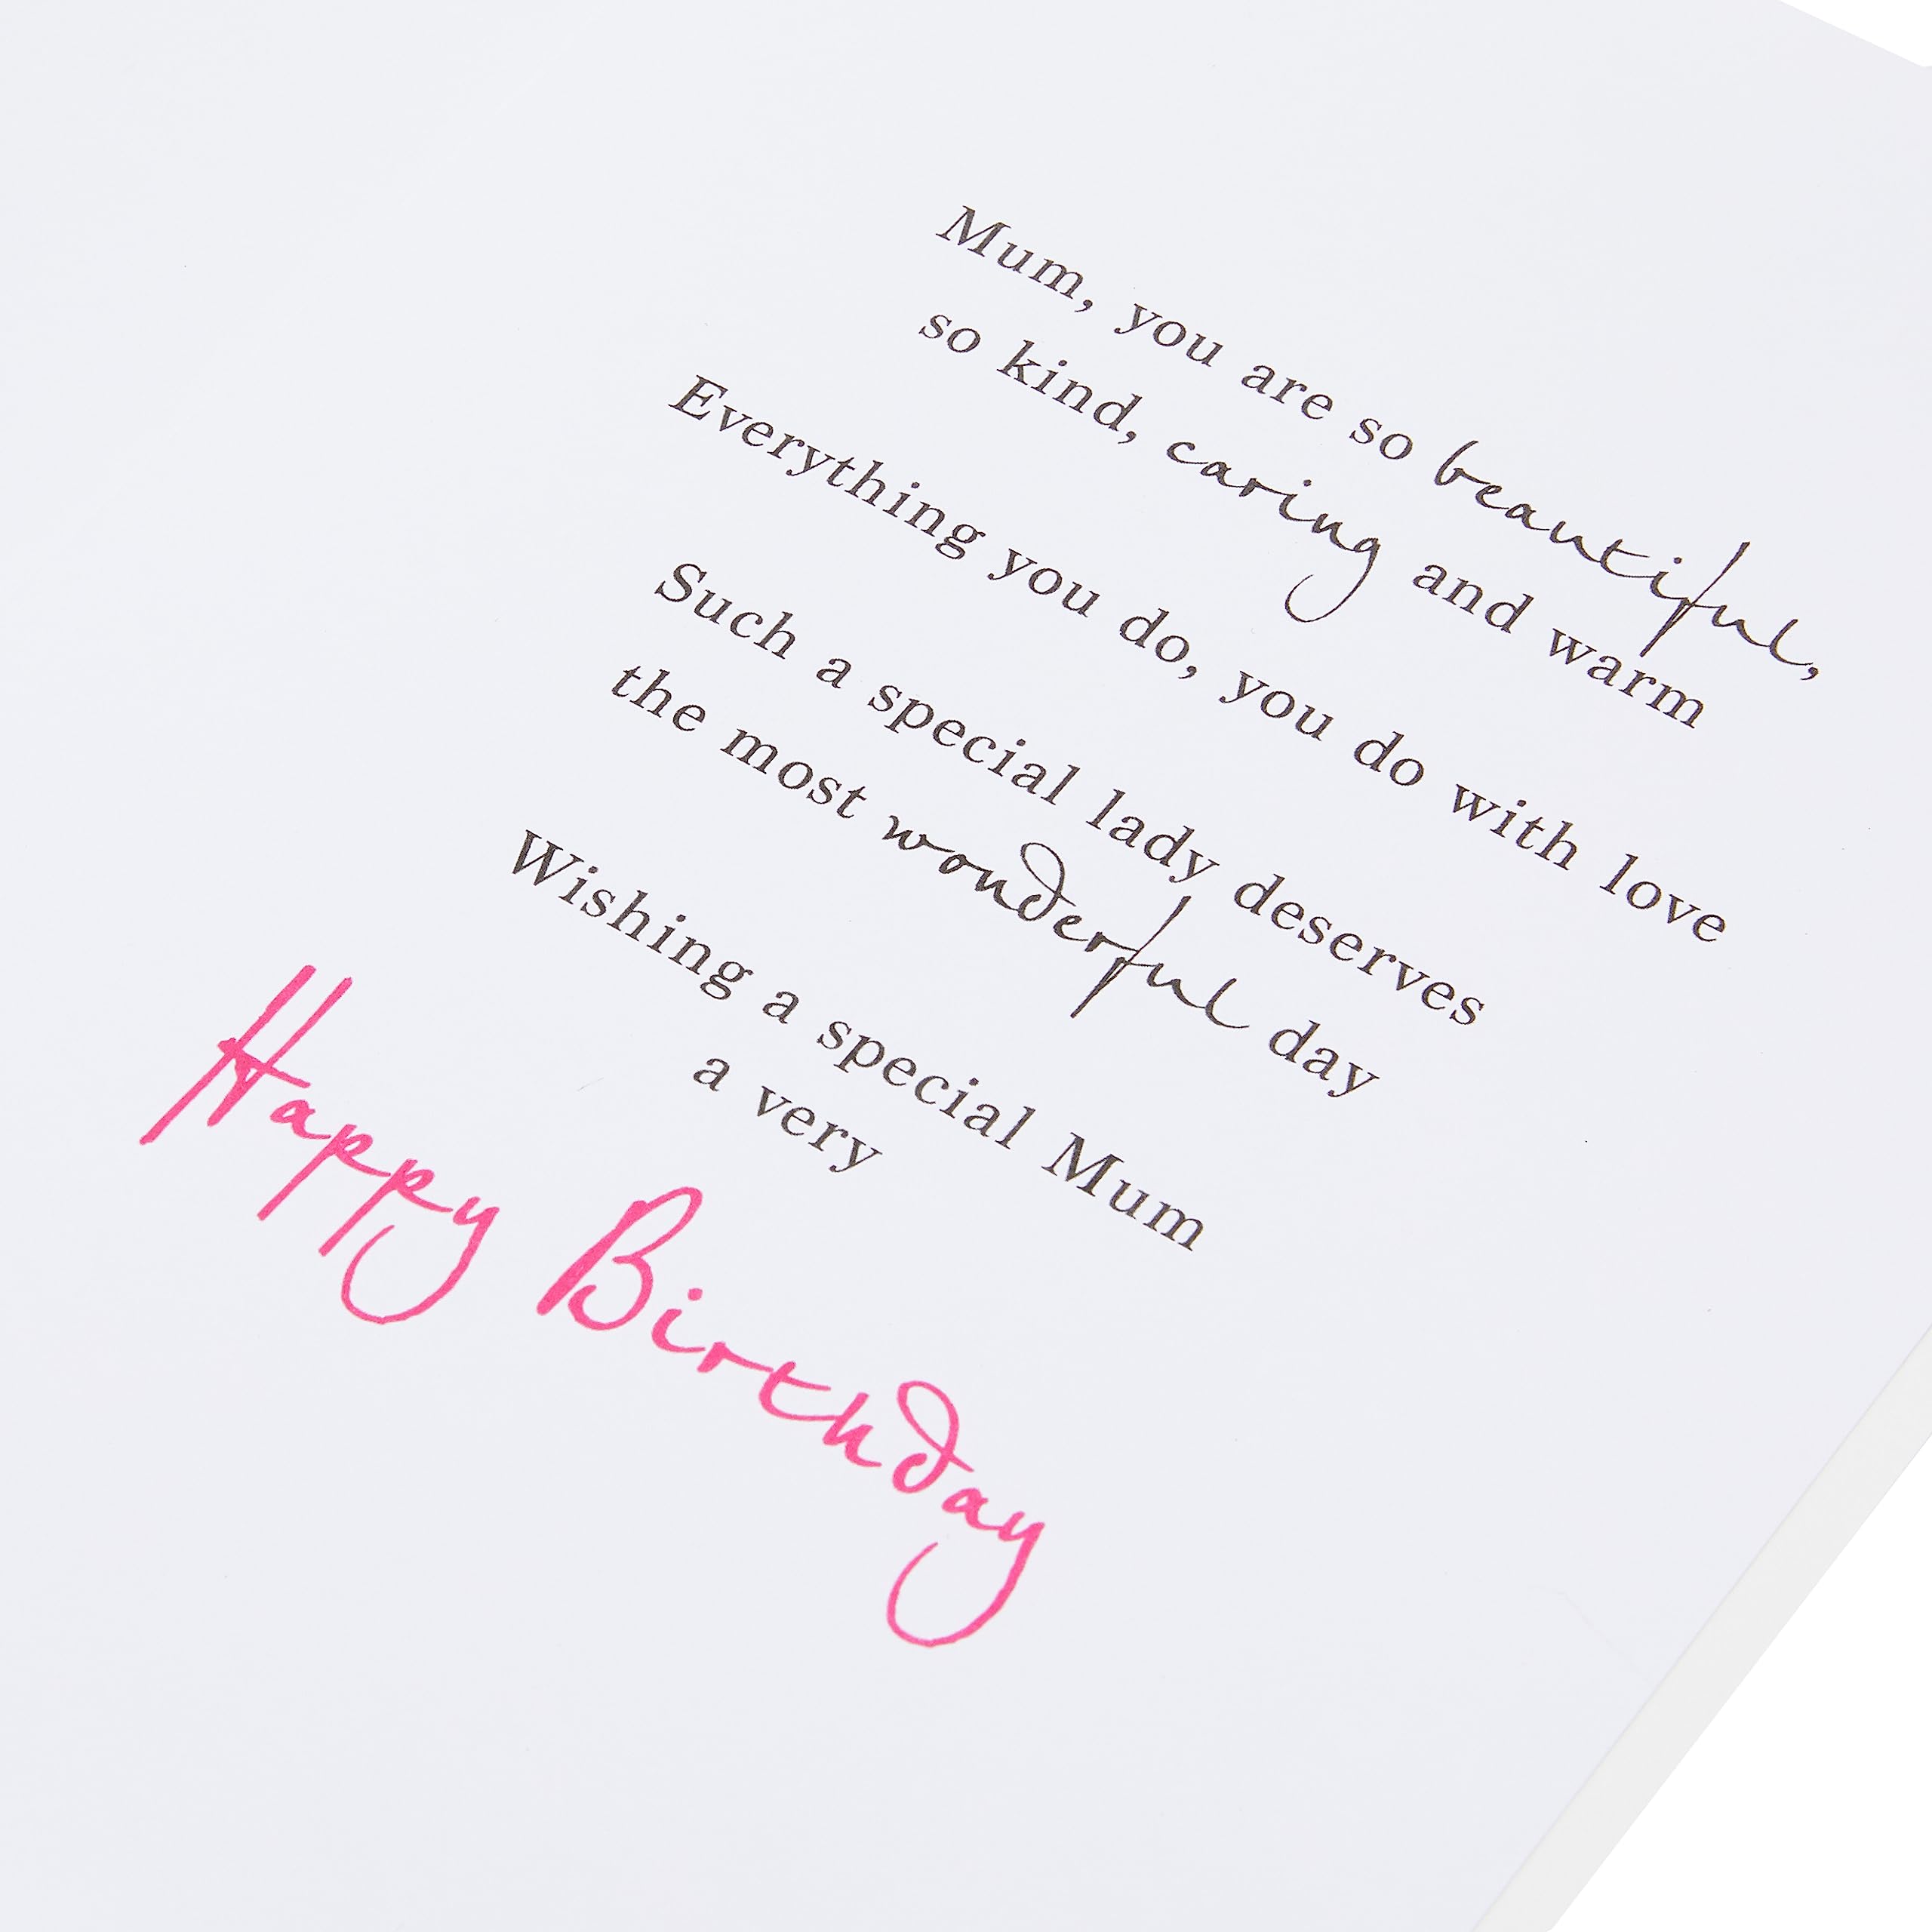 Mum, you are so beautiful,
so kind, caring and warm
Everything you do, you do with love
Such a special lady deserves
the most wonderful day
Wishing a special Mum
a very
Happy Birthday